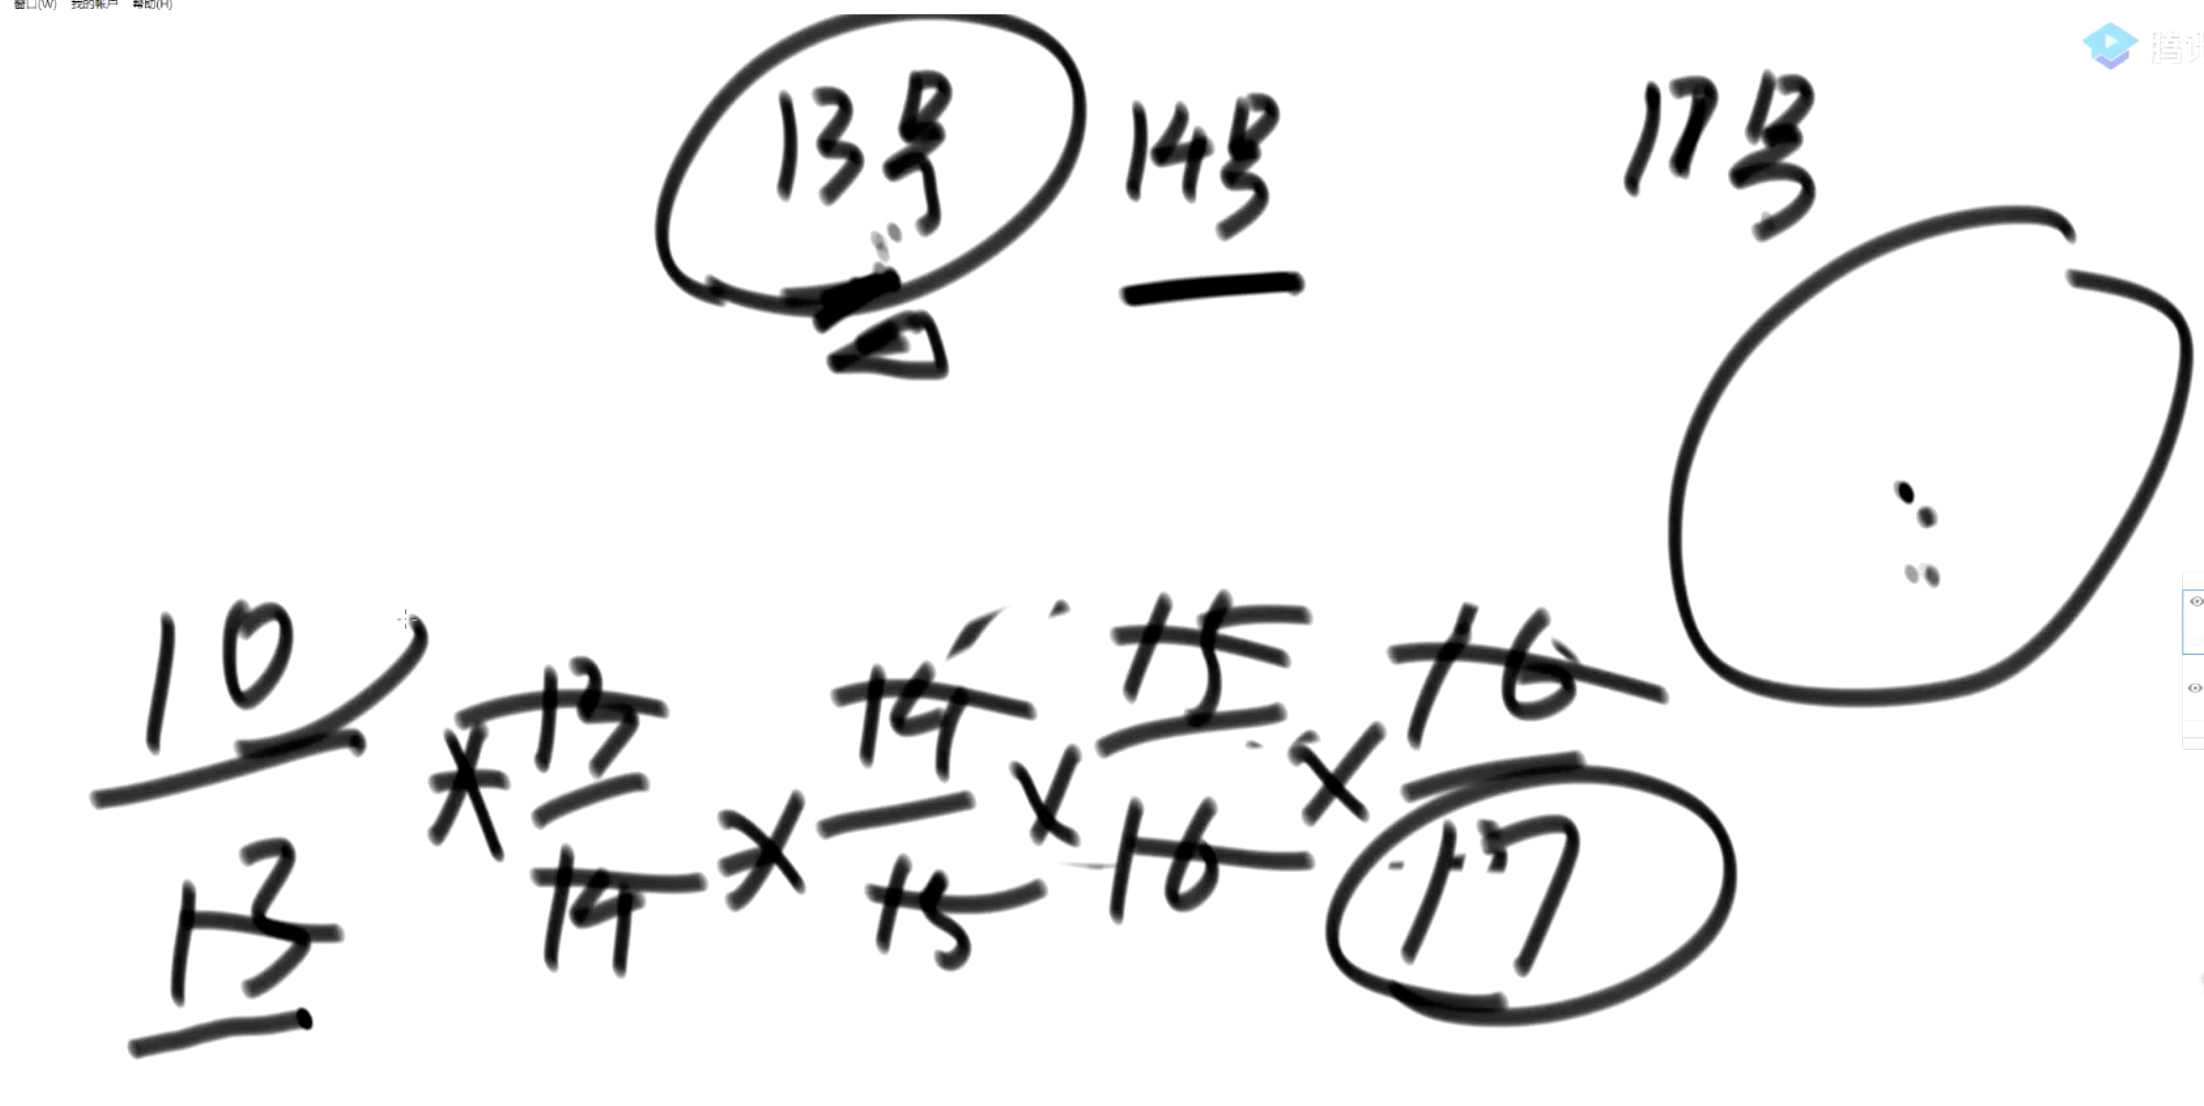 窗口(W) 我的帐户 帮助(H)
腾讯
13号 14号 17号
10/13 × 13/14 × 14/15 × 15/16 × 16/17